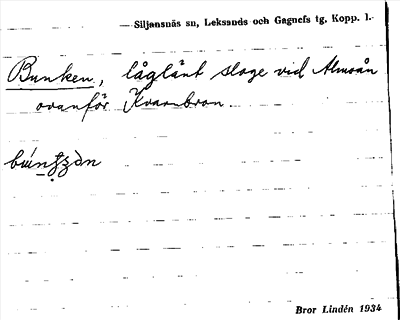 Siljansnäs sn, Leksands och Gagnefs tg, Kopp. l.
Bunken, låglänt sloge vid Almoån
ovanför Kvarnbron.
Bror Lindén 1934